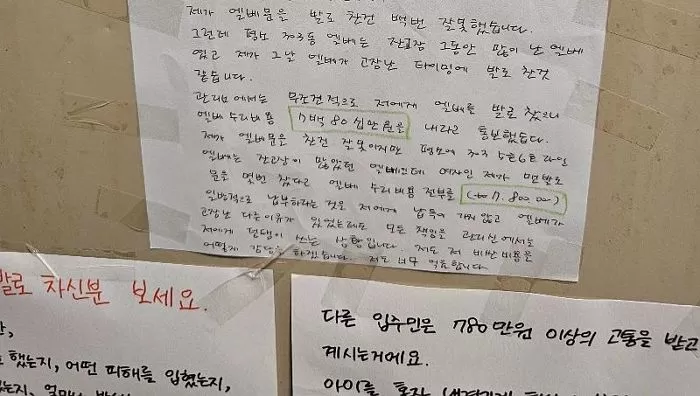 제가 엘베문을 발로 찬건 백번 잘못했습니다.
그런데 평소 303동 엘베는 잔고장 그동안 많이 난 엘베
였고 제가 그날 엘베가 고장난 타이밍에 발로 찬것
같습니다.
관리소에서는 무조건적으로 저에게 엘베를 발로 찼으니
엘베 수리비용 7백 80십만원을 내라고 통보했습니다.
제가 엘베문을 찬건 잘못이지만 평소에 303 5호6호 라인
엘베는 잔고장이 많았던 엘베인데 여자인 제가 맨발로
문을 몇번 찼다고 엘베 수리비용 전부를 7.800.00)
일방적으로 납부하라는 것은 저에게 납득이 가지 않고 엘베가
고장난 다른이유가 있었는데도 모든 책임을 관리실에서는
저에게 덤탱이 쓰는 상황입니다. 저도 저 비싼 비용을
어떻게 감당을 하겠습니다. 저도 너무 억울합니다
발로 차신분 보세요.
했는지, 어떤 피해를 입혔는지,
다른 입주민은 780만원 이상의 고통을 받고
계시는거에요.
아이를 혼자